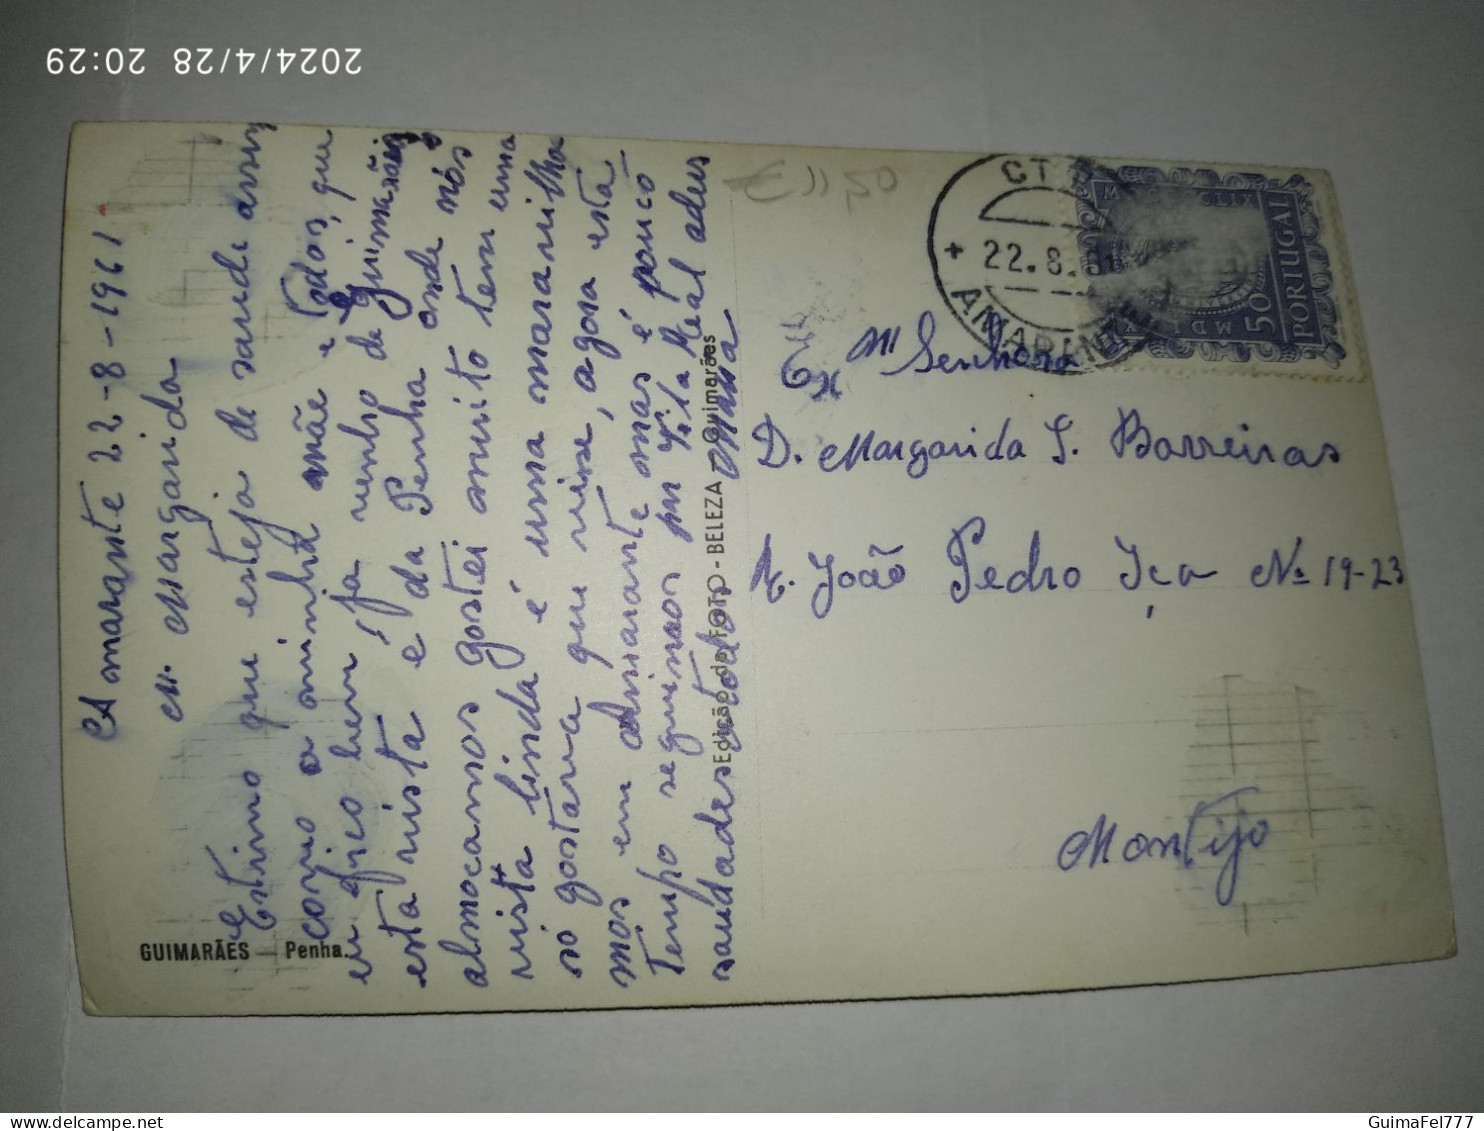 2024/4/28 20:29
Amarante 22-8-1961
M. Margarida
Estimo que esteja de saude assim
como a minha mãe e Todos, que
eu fico bem, ja venho de Guimarães
esta vista é da Penha onde nós
almocamos gostei muito tem uma
vista linda é uma maravilha
só gostava que visse, agora esta
mos em Amarante mas é pouco
Tempo seguimos Vila Real adeus
saudades a todos
Maria
GUIMARÃES — Penha.
Edição da FOTO-BELEZA — Guimarães
€ 1,50
CT
+ 22.8.61
AMARANTE
M CLIX
MDL
50
PORTUGAL
Ex Mª Senhora
D. Margarida S. Barreiras
R. João Pedro Iça Nº 19-23
Montijo
GuimaFel777